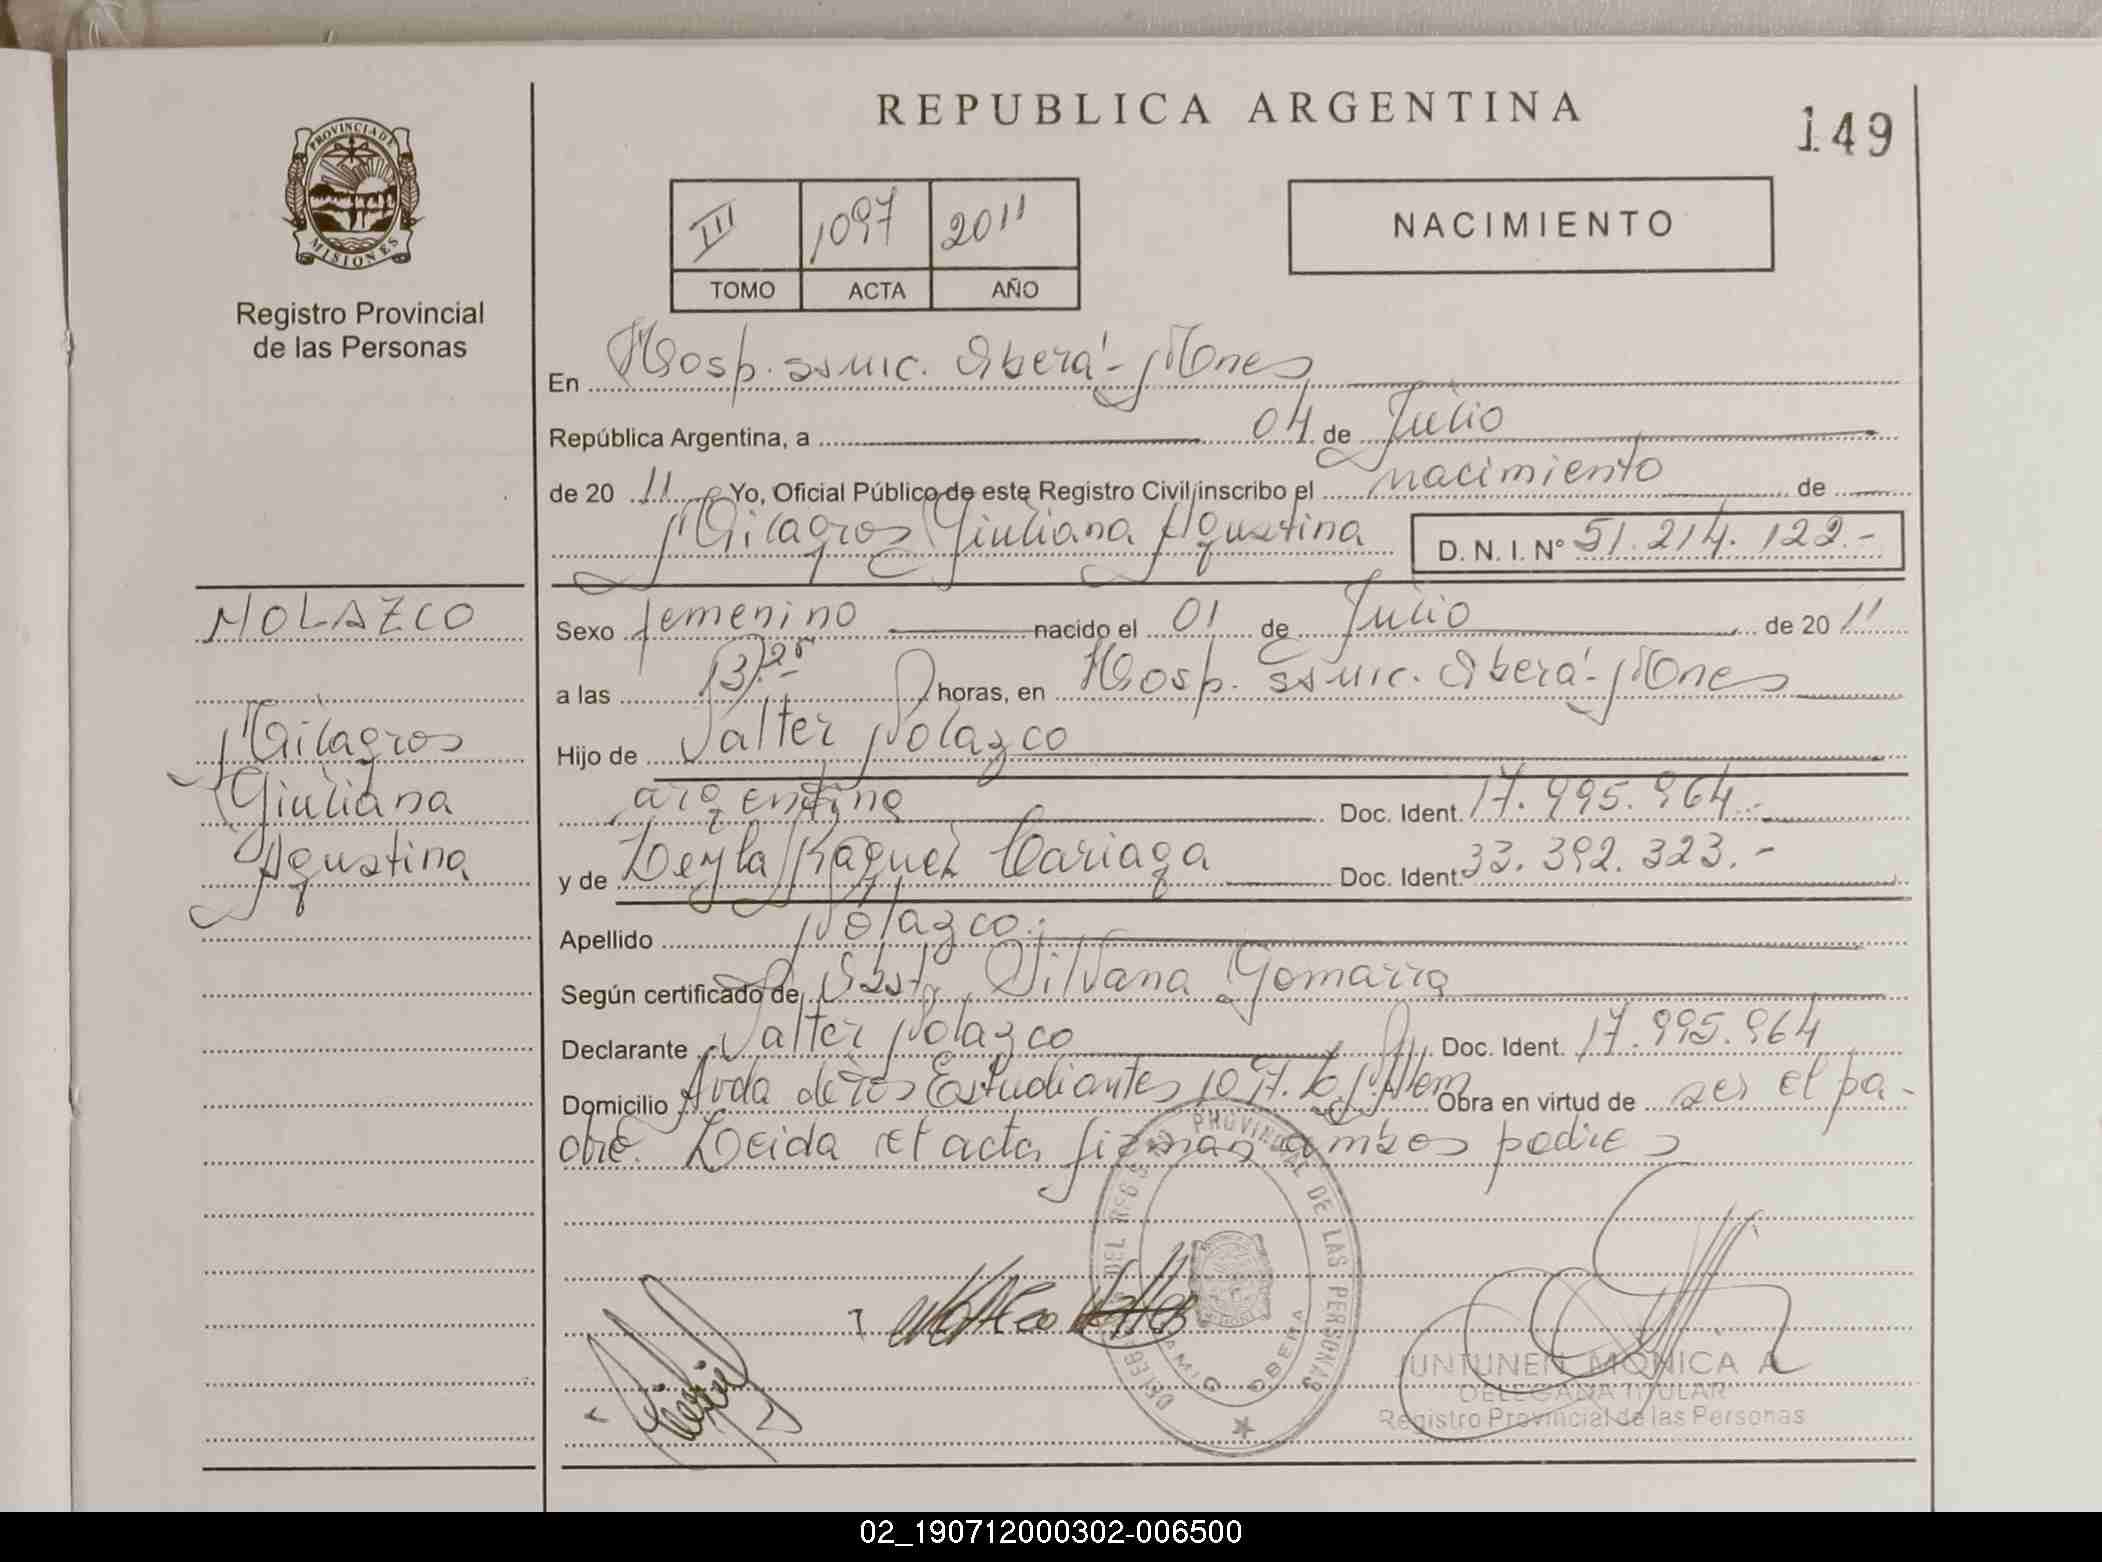 REPUBLICA ARGENTINA
149
PROVINCIA DE
MISIONES
Registro Provincial
de las Personas
III 1097 2011
TOMO ACTA AÑO
NACIMIENTO
En Hosp. Oberá - Mnes
República Argentina, a 04 de Julio
de 20 11 Yo, Oficial Público de este Registro Civil inscribo el nacimiento de
Milagros Giuliana Agustina D. N. I. Nº 51.214.122.-
NOLAZCO
Milagros
Giuliana
Agustina
Sexo femenino nacido el 01 de Julio de 20 11
a las 13,25 horas, en Hosp. Oberá - Mnes
Hijo de Valter Nolazco
argentino Doc. Ident. 17.995.964.-
y de Leyla Raquel Cariaga Doc. Ident. 33.392.323.-
Apellido Nolazco.
Según certificado de Obst. Silvana Gomarra
Declarante Valter Nolazco Doc. Ident. 17.995.964
Domicilio Avda de los Estudiantes Alem Obra en virtud de ser el pa-
dre. Leida el acta firman ambos padres
DEL REGISTRO PROVINCIAL DE LAS PERSONAS
OBERA
JUNTUNEN MONICA A
DELEGADA TITULAR
Registro Provincial de las Personas
02_190712000302-006500